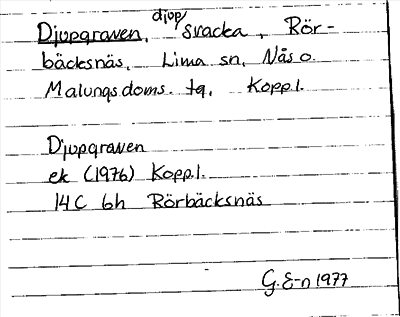 Djupgraven, djup svacka, Rör-
bäcksnäs, Lima sn, Nås o.
Malungs doms. tg, Kopp.l.
Djupgraven
ek (1976) Kopp.l.
14C 6h Rörbäcksnäs
G. E-n 1977